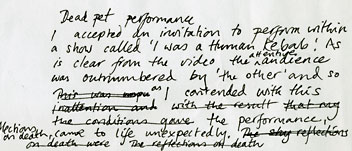 Dead pet performance
I accepted an invitation to perform within
a show called 'I was a Human Kebab'. As
is clear from the video the attentive audience
was outnumbered by 'the other' and so
as I contended with this
inattention and with the result that my
the conditions gave the performance,
reflections on death, came to life unexpectedly. The reflections
on death were The reflections on death